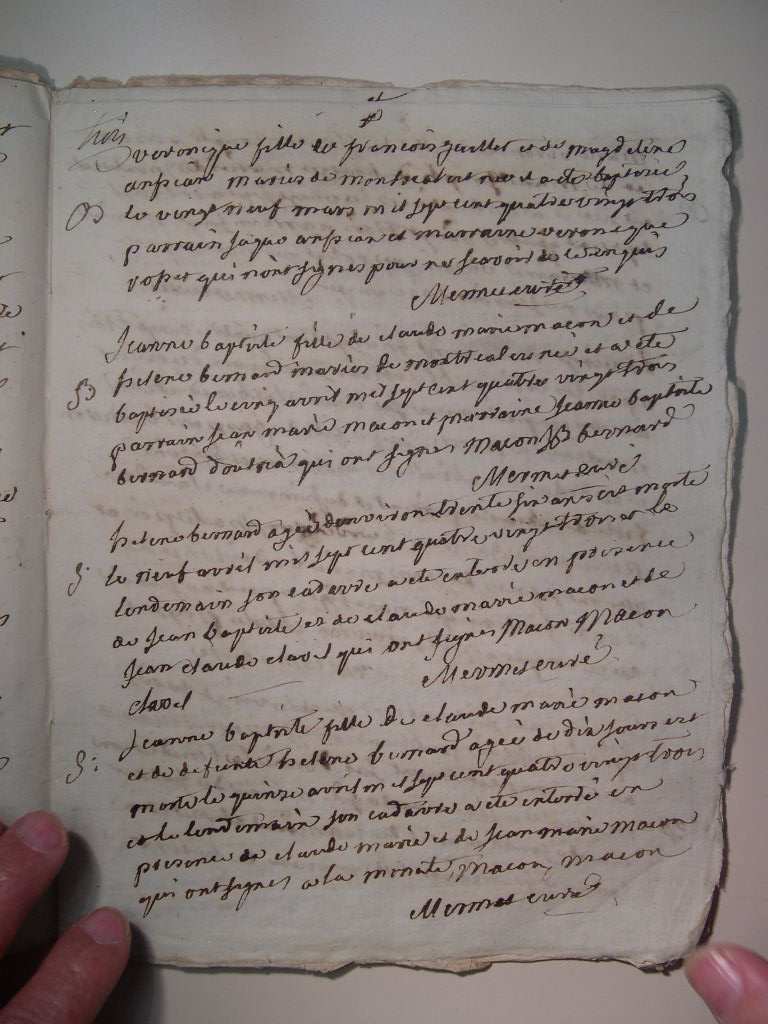 trois
veronique fille de francois guillet et de magdeleine
anssian mariés de montrealest nee et a ete baptisée
B le vingt neuf mars mil sept cent quatre vingt trois
parrain jaque anssian et marraine veronique
rosset qui n'ont signes pour ne scavoir de ce enquis
Mermet curé
jeanne baptiste fille de claude marie macon et de
helene bernard mariés de montrealest neé et a ete
B baptiseé le cinq avril mil sept cent quatre vingt trois
parrain jean marie macon et marraine jeanne baptiste
bernard d'outria qui ont signes Macon JB bernard
Mermet curé
helene bernard ageé d'environ trente six ans est morte
S. le neuf avril mil sept cent quatre vingt trois et le
lendemain son cadavre a ete enterre en presence
de jean baptiste et de claude marie macon et de
jean claude clavel qui ont signes Macon Macon
clavel
Mermet curé
jeanne baptiste fille de claude marie macon
S: et de defunte helene bernard ageé de dix jours est
morte le quinze avril mil sept cent quatre vingt trois
et le lendemain son cadavre a ete enterré en
presence de claude marie et de jean marie macon
qui ont signes a la minute, Macon, Macon
Mermet curé